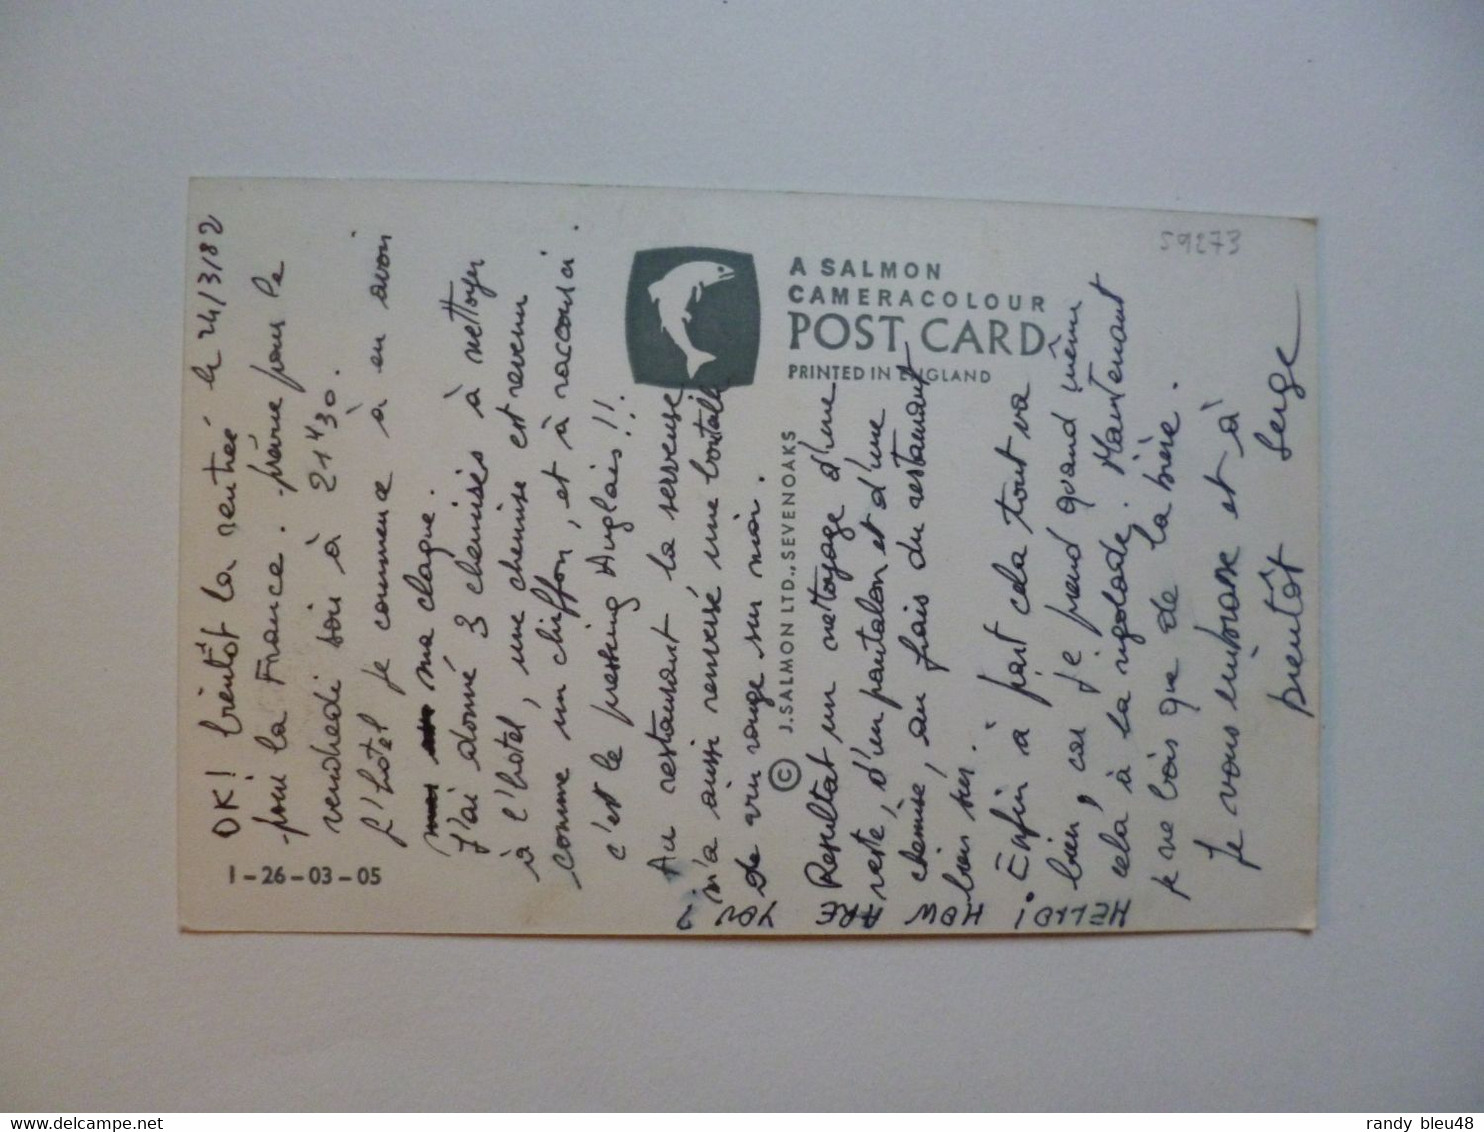 HELLO! HOW ARE YOU ?
le 24/3/82
OK! bientôt la rentrée
pour la France. prévue pour le
vendredi soir à 21H30.
L'hôtel je commence à en avoir
ma claque.
J'ai donné 3 chemises à nettoyer
à l'hôtel, une chemise est revenu
comme un chiffon, et à raccourci.
c'est le pressing Anglais!!.
Au restaurant la serveuse
m'a aussi renversé une bouteille
de vin rouge sur moi.
Resultat un nettoyage d'une
veste, d'un pantalon et d'une
chemise, au frais du restaurant
bien sûr.
Enfin à part cela tout va
bien, car je prend quand même
cela à la rigolade. Maintenant
je ne bois que de la bière.
Je vous embrasse et à
bientôt Serge
A SALMON
CAMERACOLOUR
POST CARD
PRINTED IN ENGLAND
© J. SALMON LTD., SEVENOAKS
1-26-03-05
59273
delcampe.net
randy_bleu48